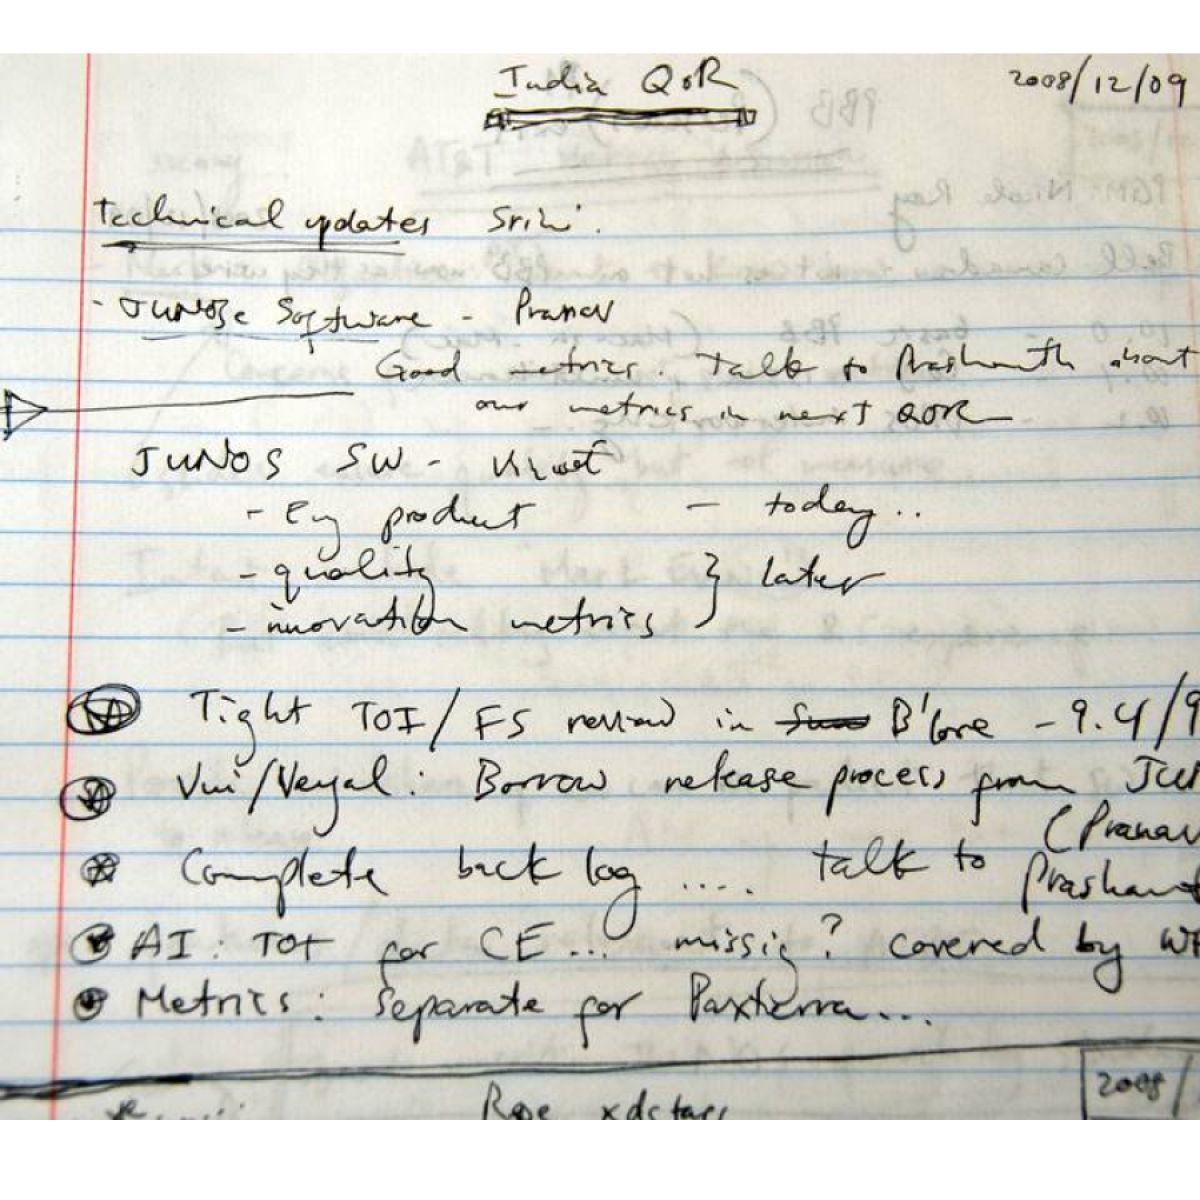 India QoR
2008/12/09
Technical updates Srini.
- JUNOSe Software - Pranav
Good metrics. Talk to Prashanth about
our metrics in next QOR
JUNOS SW -
- Eng product - today..
- quality } later
- innovation metrics
Tight TOI/FS review in B'lore - 9.4/9
Borrow release process from JUN
(Pranav
Complete back log .... talk to Prashant
AI: TOI for CE... missig? covered by
Metrics: Separate for Paxterra...
2008/